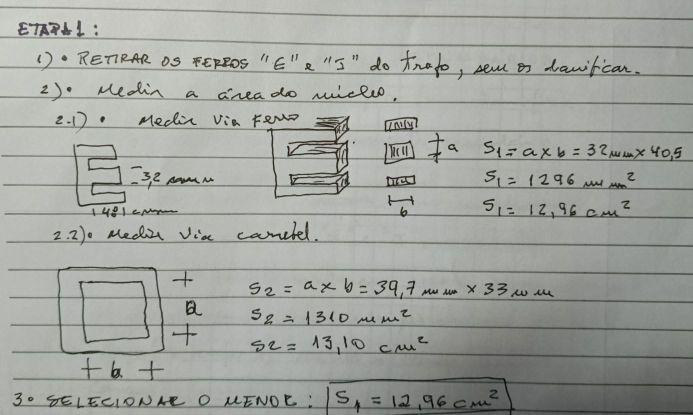 ETAPA 1:
1) • RETIRAR OS FERROS "E" e "I" do trafo, sem os danificar.
2) • Medir a área do núcleo.
2.1) • Medir Via Ferro
3,2
a
b
S1 = a x b = 32 mm x 40,5
S1 = 1296 mm²
S1 = 12,96 cm²
2.2) • Medir Via carretel.
a
b
S2 = a x b = 39,7 mm x 33 mm
S2 = 1310 mm²
S2 = 13,10 cm²
3 • SELECIONAR O MENOR: S1 = 12,96 cm²